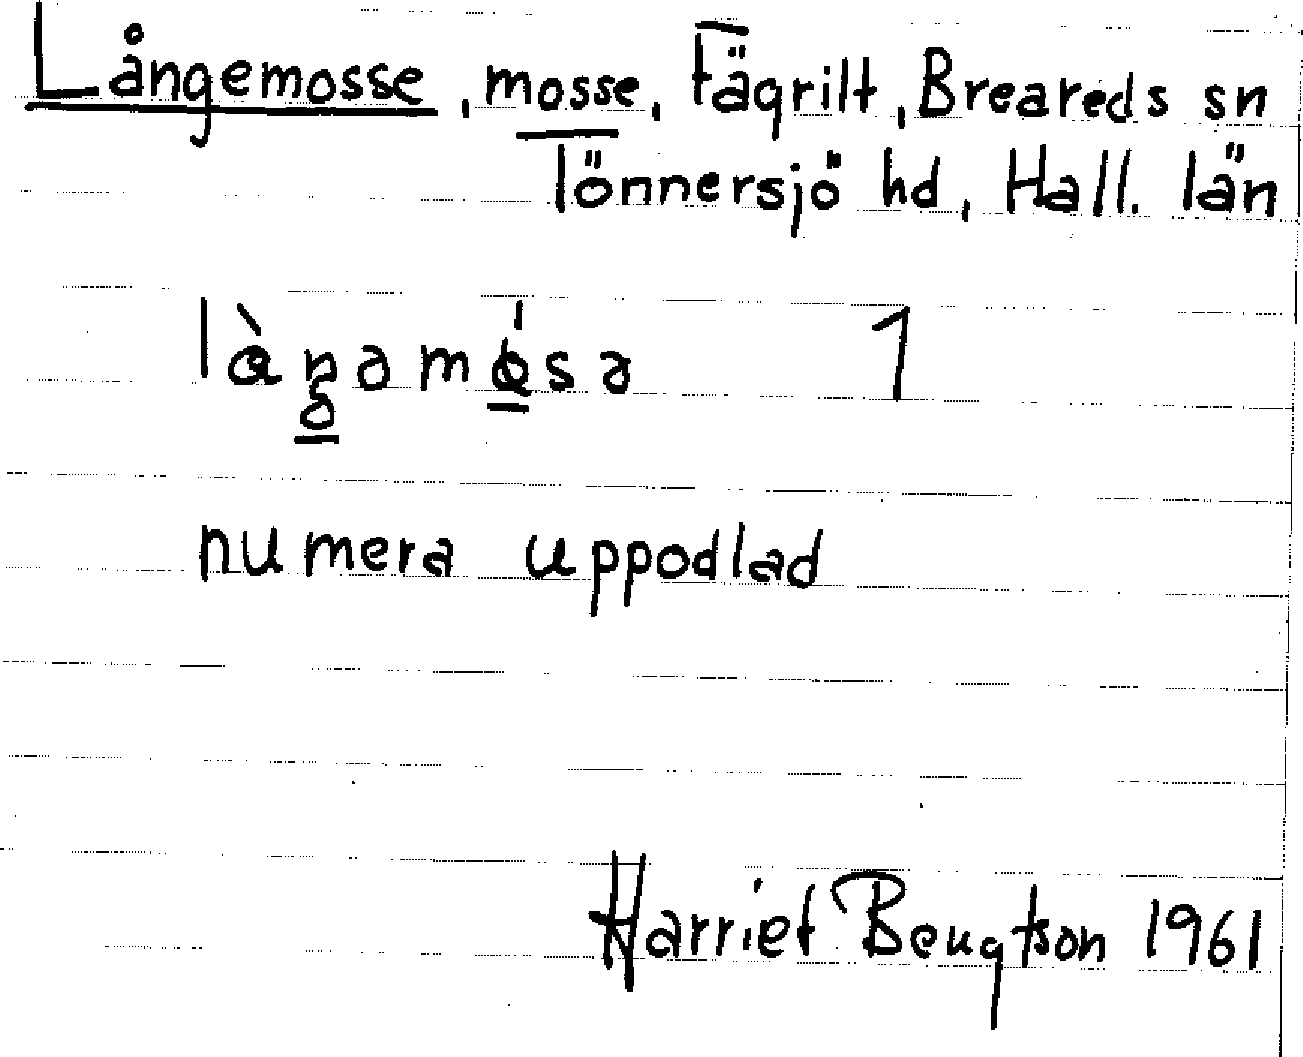 Långemosse, mosse, Fägrilt, Breareds sn
Tönnersjö hd, Hall. län
numera uppodlad
Harriet Bengtson 1961